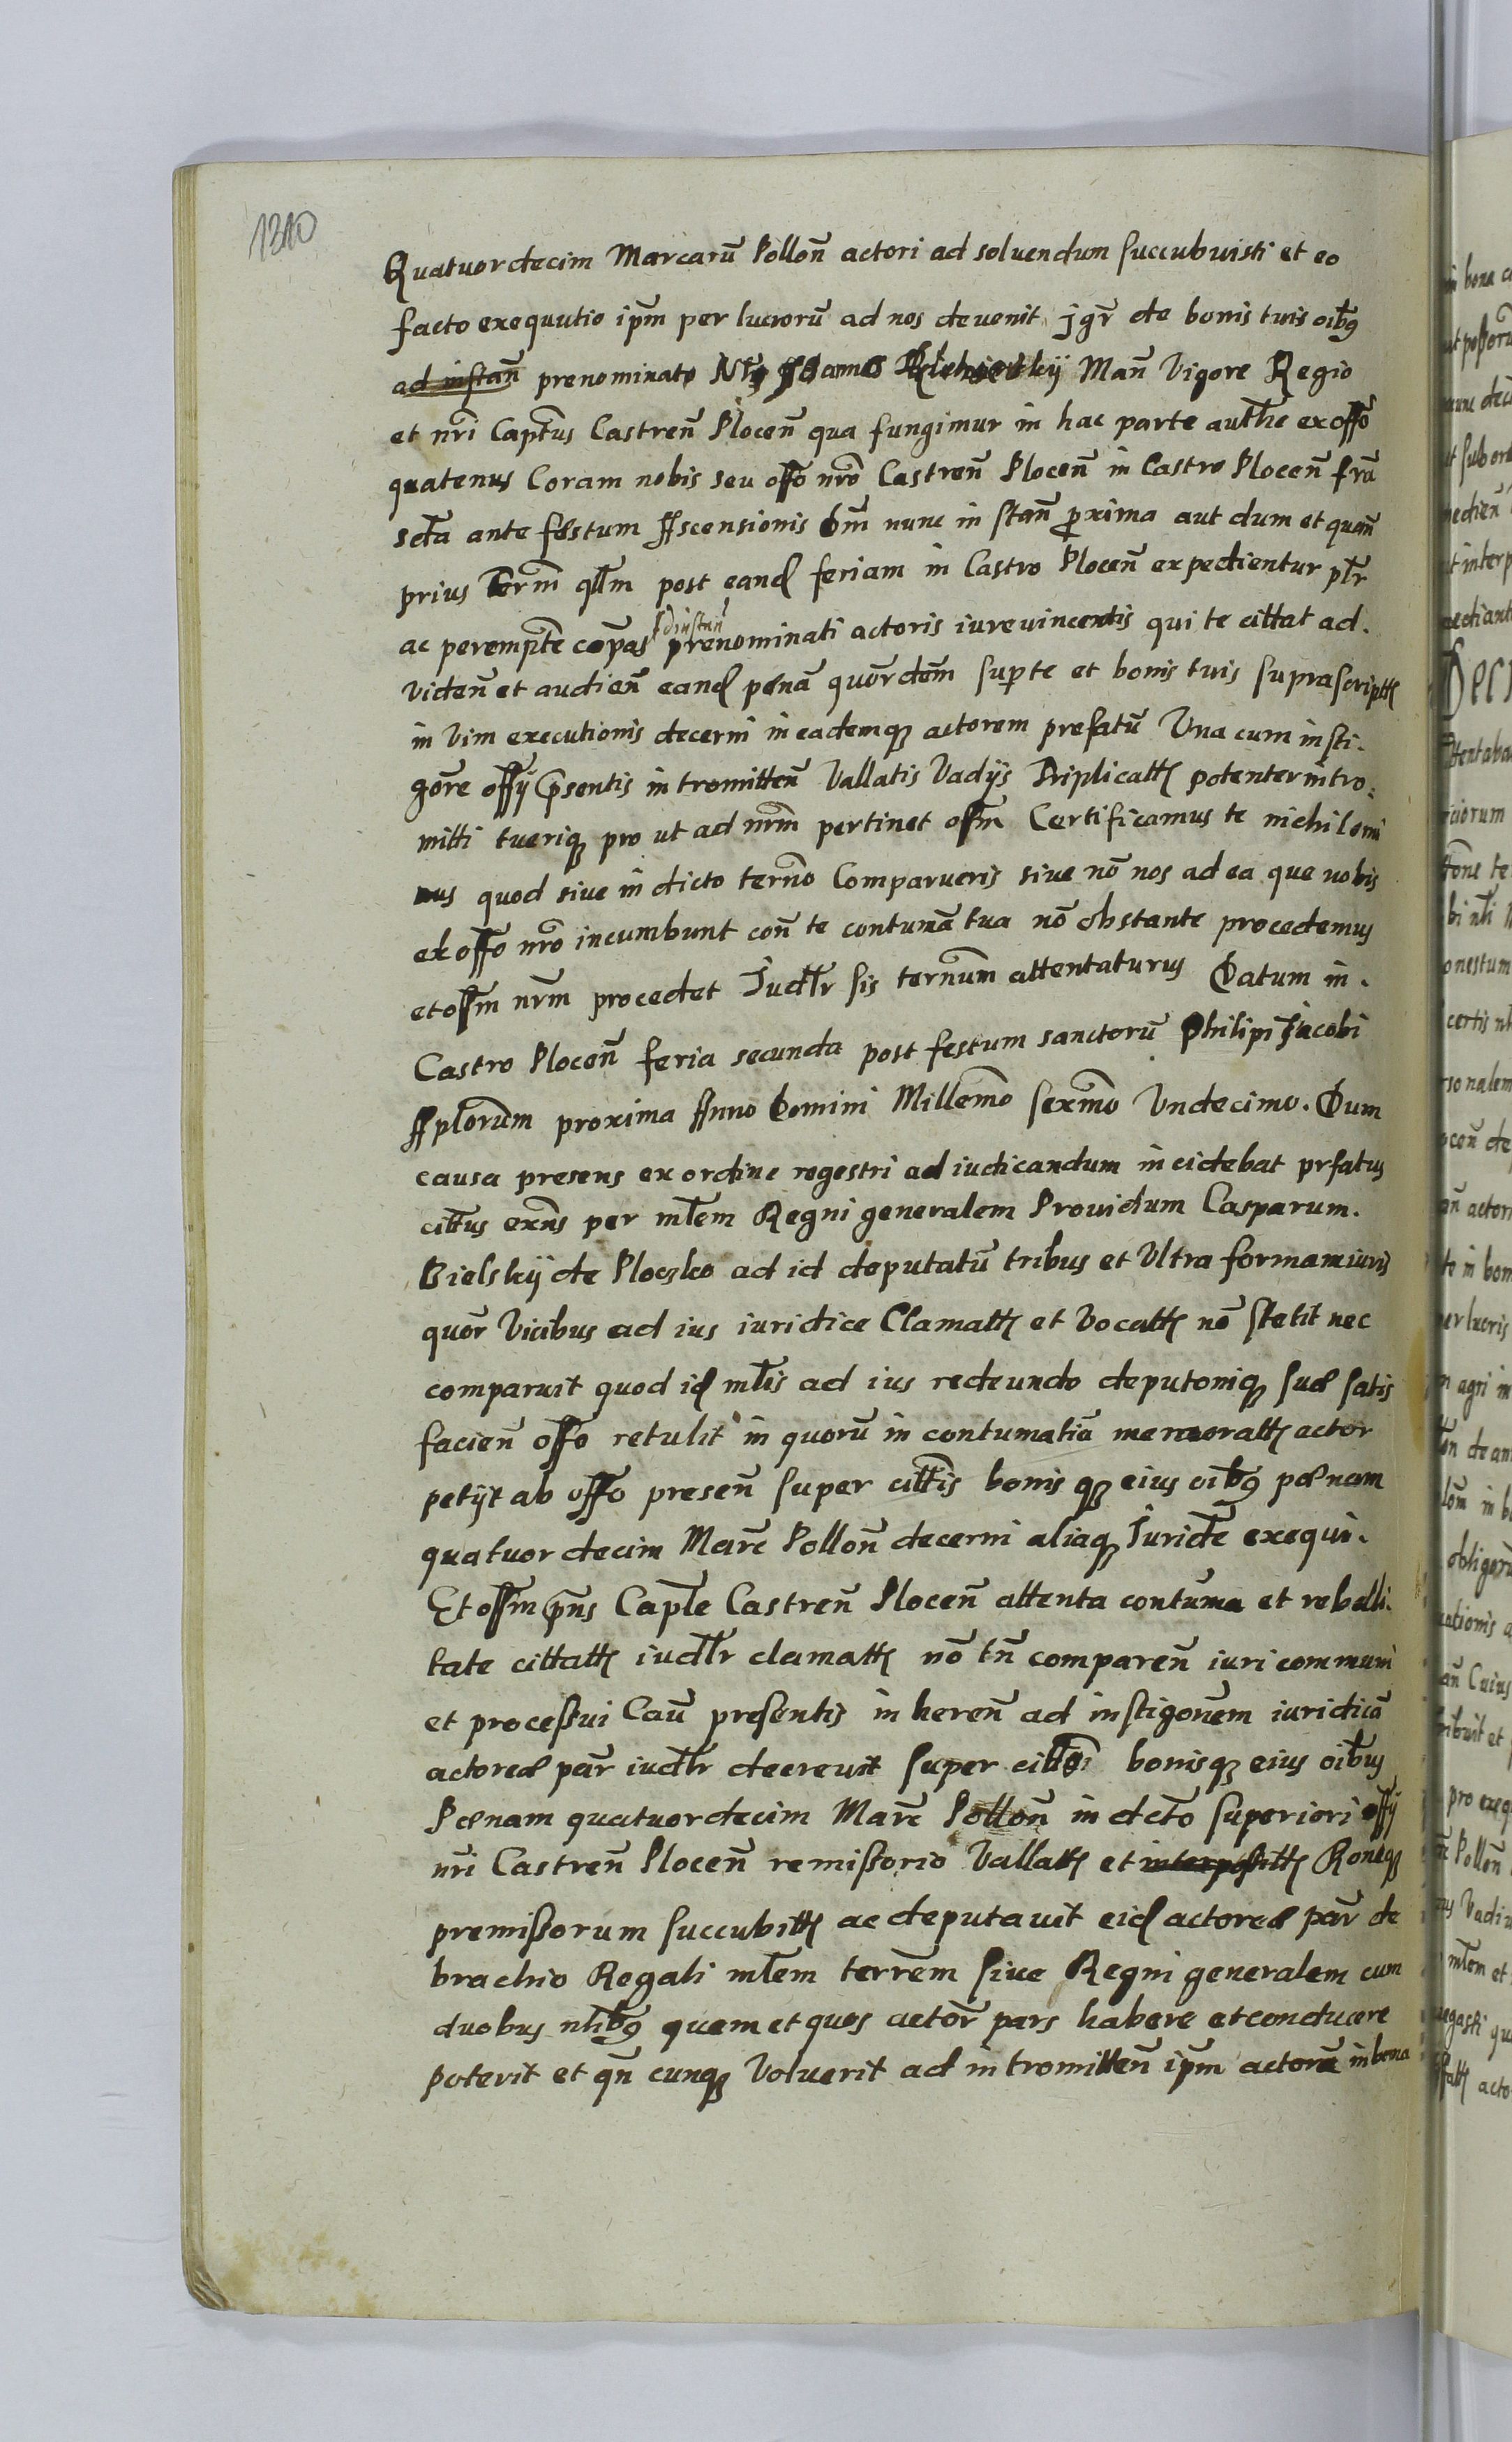 1210
Quatuordecim Marcarū Pollon̄ actori ad soluendum succubuisti et eo
facto exequutio ip̄m per lucrorū ad nos deuenit jgr̄ de bonis tuis oib9
ad instan̄ prenominato Man̄ Vigore Regio
et nr̄i Capt̄us Castren̄ Plocen̄ qua fungimur in hac parte auth̄e ex offo
quatenus Coram nobis seu offo nr̄o Castren̄ Plocen̄ in Castro Plocen̄ fr̄a
scd̄a ante festum Ascensionis Dn̄i nunc in stan̄ proxima aut dum et quan̄
prius Term̄ qllm̄ post eand feriam in Castro Plocen̄ expedientur pt̄r
ac perempt̄e copas ad instan̄ prenominati actoris iureuincentis qui te cittat ad.
viden̄ et audien̄ eand penā quor̄dem̄ supr te et bonis tuis suprascriptis
in vim executionis decerni in eademq actorem prefatū Vna cum insti-
gor̄e offij p̄sentis intromitten̄ Vallatis Vadijs Triplicattis potenter intro:
mitti tuerique pro ut ad nr̄m pertinet offm̄ Certificamus te nichilomi
nus quod siue in dicto term̄o Comparueris siue nō nos ad ea que nobis
ex offo nr̄o incumbunt con̄ te contumā tua nō obstante procedemus
et offm̄ nr̄m procedet Iudt̄r sis term̄um attentaturus Datum in.
Castro Plocen̄ feria secunda post festum sanctorū Philipi Jacobi
Aplorum̄ proxima Anno Domini Millem̄o sexm̄o Vndecimo. Dum
causa presens ex ordine regestri ad iudicandum incidebat prfatus
citt̄us exn̄s per mlt̄em Regni generalem Prouidum Casparum.
Bielskij de Ploczko ad id deputatū tribus et Vltra formam iuris
quor̄ Vicibus ad ius iuridice Clamattis et Vocattis nō stetit nec
comparuit quod id mlt̄is ad ius redeundo deputoniq suae satis
facien̄ offo retulit in quorū in contumatiā memorattis actor
petijt ab offo presen̄ super citt̄is bonis q eius oib9 poenam
quatuordecim Marc̄ Pollon̄ decerni aliaq Iuridt̄e exequi.
Et offm̄ pn̄s Capl̄e Castren̄ Plocen̄ attenta contuma et rebelli.
tate cittattis iudt̄r clamattis nō tn̄ comparen̄ iuri communi
et processui Cau̅ presentis inheren̄ ad instigonem̄ iuridicā
actoreae par̄ iudt̄r decreuit super bonisq eius oib̄us
Poenam quatuordecim Marc̄ Pollon̄ in dct̄o superiori offij
nr̄i Castren̄ Plocen̄ remissorio Vallattis et interposittis Roneq
premissorum succubittis ac deputauit eid actoreae par̄ de
brachio Regali mlt̄em terrem̄ siue Regni generalem cum
duobus nl̄ib9 quem et quos actor̄ pars habere et conducere
poterit et qn̄ cunq Voluerit ad intromitten̄ ip̄m actorē in bona